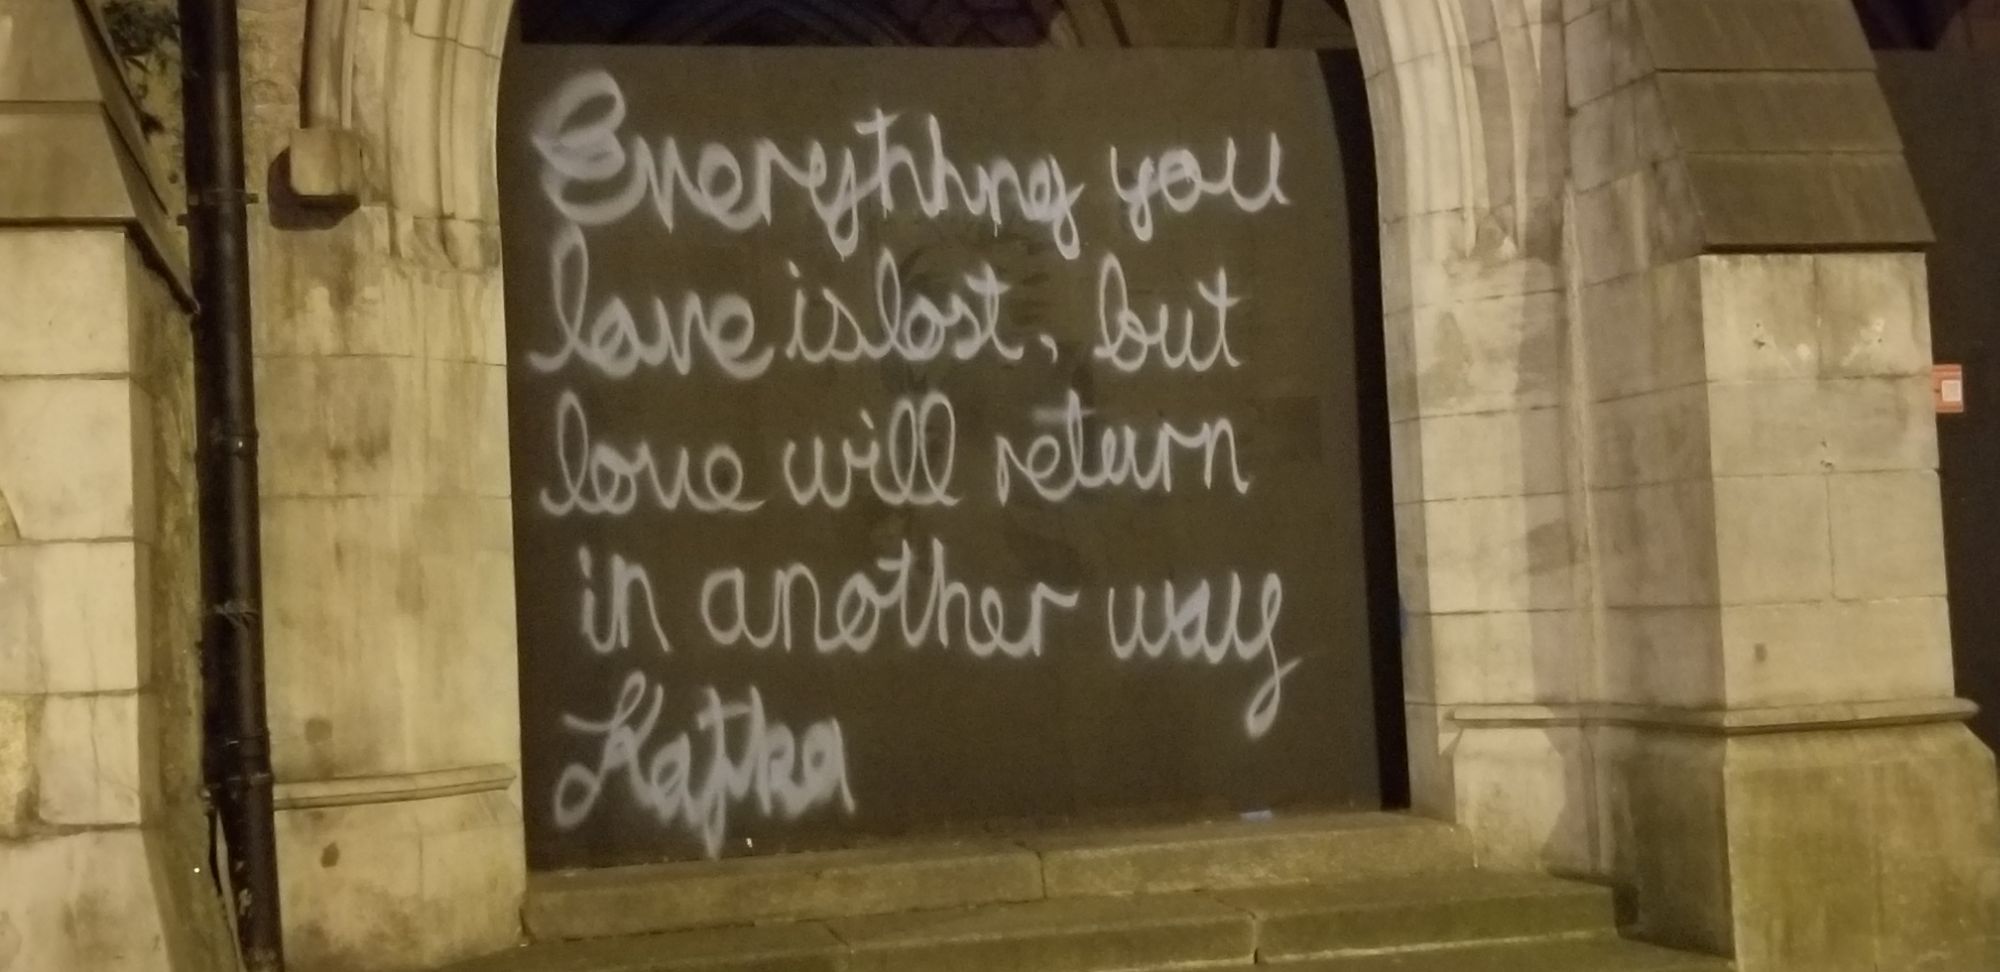 Everything you
love is lost, but
love will return
in another way
Kafka